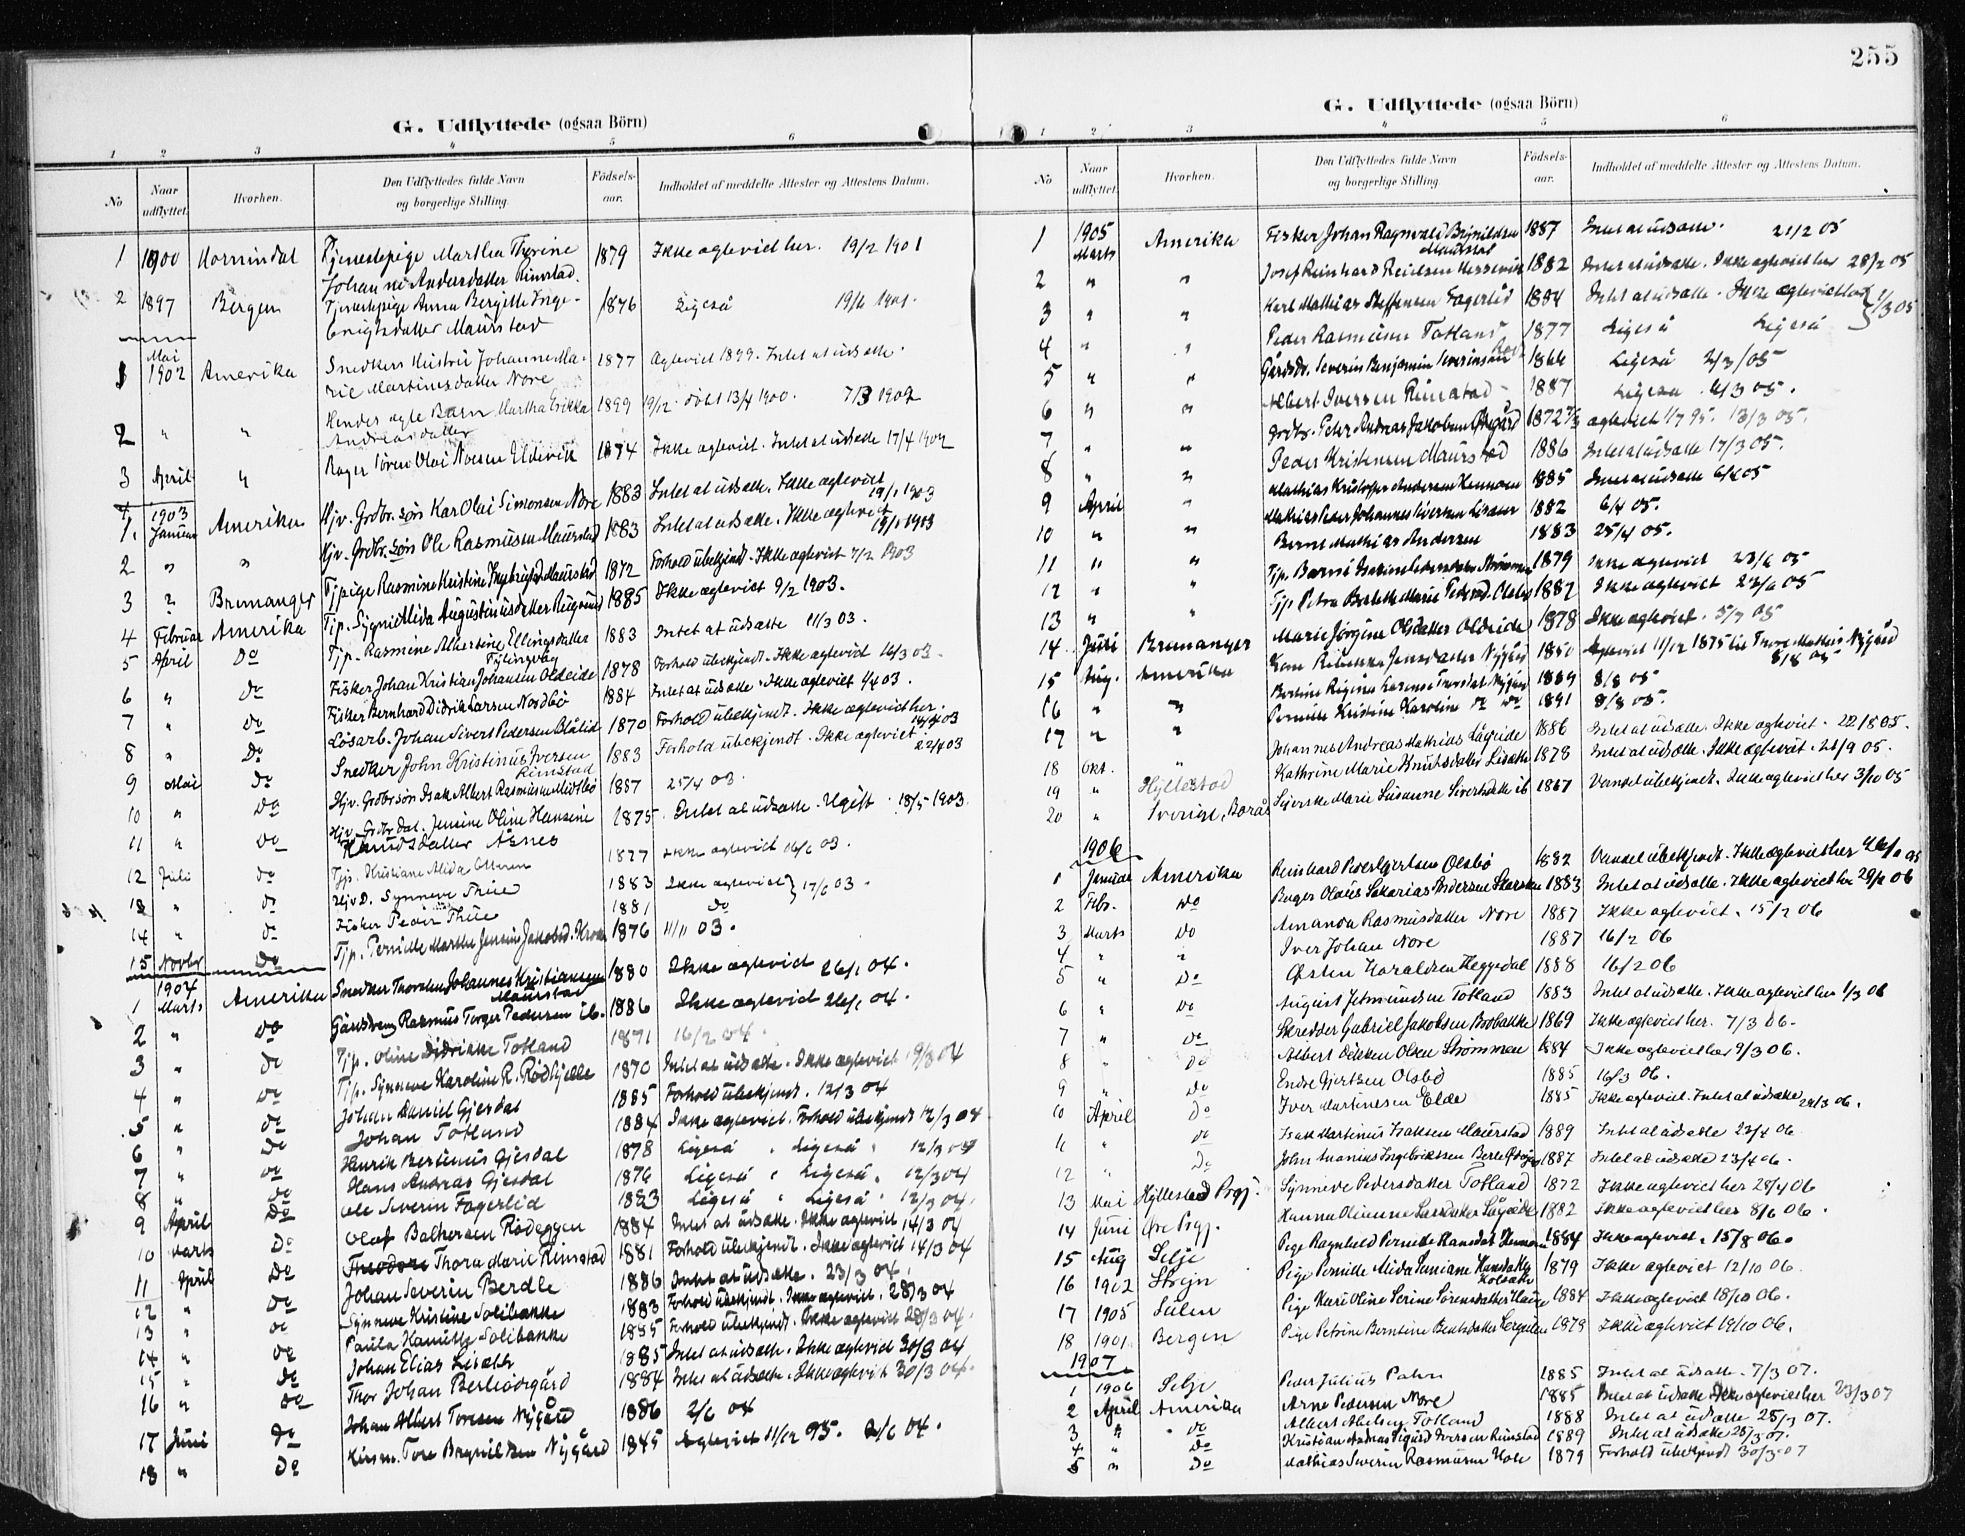 255
G. Udflyttede (ogsaa Börn)
1 2 3 4 5 6
No Naar udflyttet. Hvorhen. Den Udflyttedes fulde Navn og borgerlige Stilling. Födsels-aar. Indholdet af meddelte Attester og Attestens Datum.
1 1900 Hornindal Tjenestepige Martha Thorine 1879 Ikke ægteviet her. 19/2 1901
Johanne Andersdatter Rimstad.
2 1897 Bergen Tjenestepige Anna Bergitte Inge- 1876 Ligeså 19/6 1901.
brigtsdatter Maurstad
Mai
1 1902 Amerika Snedkers Hustru Johanne Ma- 1877 Ægteviet 1899. Intet at udsætte.
rie Martinusdatter Nore
2 " " Hendes ægte Barn Martha Erikka 1899 19/12. døbt 13/4 1900. 7/3 1902
Andreasdatter
3 April " Olai Eldevik 1874 Ikke ægteviet. Intet at udsætte 17/4 1902
1903
1. Januar Amerika Hjv. Grdbr. søn Karl Olai Simonsen Nore 1883 Intet at udsætte. Ikke ægteviet 19/1 1903
2 " " Hjv. Grdbr. søn Ole Rasmusen Maurstad 1883 Intet at udsætte. Ikke ægteviet 19/1 1903
3 " Bremanger Tjpige Rasmine Kristine Maurstad 1872 Forhold ubekjendt. Ikke ægteviet 7/2 1903
4 Februar Amerika Tjp. Alida Augustinusdatter 1885 Ikke ægteviet 9/2 1903.
5 April Do Tjp. Rasmine Albertine Ellingsdatter 1883 Intet at udsætte 11/3 03.
6 " Do Fisker Johan Kristian Johansen Oldeide 1878 Forhold ubekjendt. Ikke ægteviet 16/3 03.
7 " Do Fisker Bernhard Didrik Larsen Nordbø 1884 Intet at udsætte. Ikke ægteviet 1/4 03.
8 " Do Løsarb. Johan Sivert Pedersen Blålid 1870 Forhold ubekjendt. Ikke ægteviet her. 14/4 03
9 Mai Do Snedker John Kristinus Iversen Rimstad 1883 Forhold ubekjendt. Ikke ægteviet 22/4 03
10 " Do Hjv. Grdbr søn Isak Albert Rasmusen Midtbø 1887 25/4 03.
11 " Do Hjv. Grdbr Dat. Jensine Oline Hansine 1875 Intet at udsætte. Ugift. 18/5 1903.
Knudsdatter Åsnes
12 Juli Do Tjp. Kristiane Alida 1877 Ikke ægteviet 16/6 03.
13 " Do Hjv D. Synneve Thue 1883 Ikke ægteviet } 17/6 03.
14 " Do Fisker Peder Thue 1881 Do
15 Novbr Do Tjp. Pernille Marthe Jensine 1876 11/11 03.
1904
1 Marts Amerika Snedker Thorsten Johannes Kristiansen Maurstad 1880 Ikke ægteviet 26/1 04.
2 " Do Gårdsdreng Rasmus Torger Pedersen ib. 1886 Ikke ægteviet 26/1 04.
3 " Do Tjp. Oline Didrikke Totland 1871 16/2 04.
4 " Do Tjp. Synneve Karoline R. Rødhjelle 1870 Intet at udsætte. Ikke ægteviet 19/3 04
5 " Do Johan Daniel Gjesdal 1885 Forhold ubekjendt. 12/3 04
6 " Do Johan Totland 1884 Ikke ægteviet. Forhold ubekjendt 12/3 04
7 " Do Henrik Bertinus Gjesdal 1878 Ligeså. Ligeså. 12/3 04
8 " Do Hans Andreas Gjesdal 1876 Ligeså. Ligeså. 12/3 04
9 April Do Ole Severin Fagerlid 1883 Ligeså. Ligeså. 12/3 04.
10 Marts Do Olaf Balthersen Rødeggen 1884 Intet at udsætte. Ikke ægteviet 14/3 04
11 April Do Theodora Thora Marie Rimstad 1881 Forhold ubekjendt. Ikke ægteviet 14/3 04
12 " Do Johan Severin Berdle 1886 Intet at udsætte. 23/3 04.
13 " Do Synneve Kristine Solibakke 1883 Forhold ubekjendt. Ikke ægteviet. 28/3 04
14 " Do Paula Solibakke 1885 Forhold ubekjendt. Ikke ægteviet 28/3 04.
15 " Do Johan Elias Lisæth 1885 Intet at udsætte. Ikke ægteviet 30/3 04
16 " Do Thor Johan 1884 Intet at udsætte. Ikke ægteviet 30/3 04.
17 Juni Do Johan Albert Toresen Nygård 1886 2/6 04
18 " Do Tore Brynildsen Nygård 1845 Ægteviet 11/12 95. 2/6 04.
G. Udflyttede (ogsaa Börn)
1 2 3 4 5 6
No Naar udflyttet. Hvorhen. Den Udflyttedes fulde Navn og borgerlige Stilling. Födsels-aar. Indholdet af meddelte Attester og Attestens Datum.
1905
1 Marts Amerika Fisker Johan Ragnvald Brynildsen Maurstad 1887 Intet at udsætte. 21/2 05
2 " " Josef Reinhard Reielsen 1882 Intet at udsætte. Ikke ægteviet her 28/2 05
3 " " Karl Mathias Steffensen Fagerlid 1884 Intet at udsætte. Ikke ægteviet } 1/3 05
4 " " Peder Rasmusen Totland 1877 Ligeså Ligeså
5 " " Severin Benjamin Severinsen 1866 Ligeså 2/3/05
6 " " Albert Iversen Rimstad 1887 Ligeså. 6/3 05.
7 " " Grdbr. Peter Andreas Jakobsen 1872 ægteviet 1/7 95. 13/3 05.
8 " " Peder Kristensen Maurstad 1886 Intet at udsætte 17/3 05.
9 April " Mathias Kristofer Andersen Hennøen 1885 Intet at udsætte 6/4 05
10 " " Mathias Peder Johannes Iversen 1882 6/4 05.
11 " " Bernt Mathias Andersen 1883 25/4 05.
12 " " Tjp. 1879 Ikke ægteviet 23/6 05
13 " " Tjp. Petra Marie 1887 Ikke ægteviet 23/6 05
14 Juni Bremanger Marie Jørgine Olsdatter Oldeide 1878 Ikke ægteviet. 5/7 05
15 Aug. Amerika Kone Rebekka Jensdatter Nygård 1850 Ægteviet 11/12 1875 til Tore Mathias Nygård 8/8 05
16 " " Bertine Regine Nygård 1889 8/8 05
17 " " Pernille Kristine Karoline Do Do 1891 8/8 05.
18 Okt. " Johannes Andreas Mathias Lågeide 1886 Intet at udsætte. Ikke ægteviet. 22/8 05.
19 " Hyllestad Kathrine Marie Knutsdatter Lisæth 1878 Intet at udsætte. Ikke ægteviet. 21/9 05.
20 " Sverige, Borås Marie Susanne ib 1867 Vandel ubekjendt. Ikke ægteviet her 3/10 05
1906
1 Januar Amerika Reinhard Olsbø 1882 Vandel ubekjendt. Ikke ægteviet her
2 Febr. Do Olaus Sakarias Andersen 1883 Intet at udsætte. Ikke ægteviet her 29/1 06
3 Marts Do Amanda Rasmusdatter Nore 1887 Ikke ægteviet. 15/2 06
4 " " Iver Johan Nore 1887 16/2 06
5 " Do Østen Haraldsen Heggedal 1888 16/2 06
6 " Do August Totland 1883 Intet at udsætte. Ikke ægteviet her 1/3 06
7 " Do Skredder Gabriel Jakobsen 1869 Ikke ægteviet her. 7/3 06.
8 " Do Albert Olsen Strømmen 1884 Ikke ægteviet her 9/3 06.
9 " Do Endre Gjertsen Olsbø 1885 16/3 06.
10 April Do Iver Martinesen Elde 1885 Ikke ægteviet. Intet at udsætte 24/3 06.
11 " Do Isak Martinus Isaksen Maurstad 1889 Intet at udsætte 23/4 06
12 " Do John Ananias 1887 Intet at udsætte 23/4 06.
13 Mai Hyllestad Prgj. Synneve Pedersdatter Totland 1872 Ikke ægteviet her 28/4 06
14 Juni Øre Prgj. Hanna Larsdatter Lågeide 1882 Ikke ægteviet her 8/6 06.
15 Aug Selje Pige Ragnhild Pernille 1884 Ikke ægteviet. 15/8 06.
16 1902 Stryn Pige Pernille Alida Hansdatter 1879 Ikke ægteviet 12/10 06.
17 1905 Sulen Pige Kari Oline Serine Sørensdatter 1884 Ikke ægteviet 18/10 06.
18 1901 Bergen Pige Petrine Berntine 1879 Ikke ægteviet 19/10 06.
1907
1 1906 Selje Peder Julius 1885 Intet at udsætte. 7/3 07.
2 April Amerika Arne Pedersen Nore 1885 Intet at udsætte Ikke ægteviet her 23/3 07
3 " Do Albert Totland 1888 Intet at udsætte 25/3 07.
4 " Do Kristian Andreas Sigurd Iversen Rimstad 1889 Intet at udsætte 28/3 07.
5 " Do Mathias Severin Rasmusen Hole 1879 Forhold ubekjendt 30/3 07